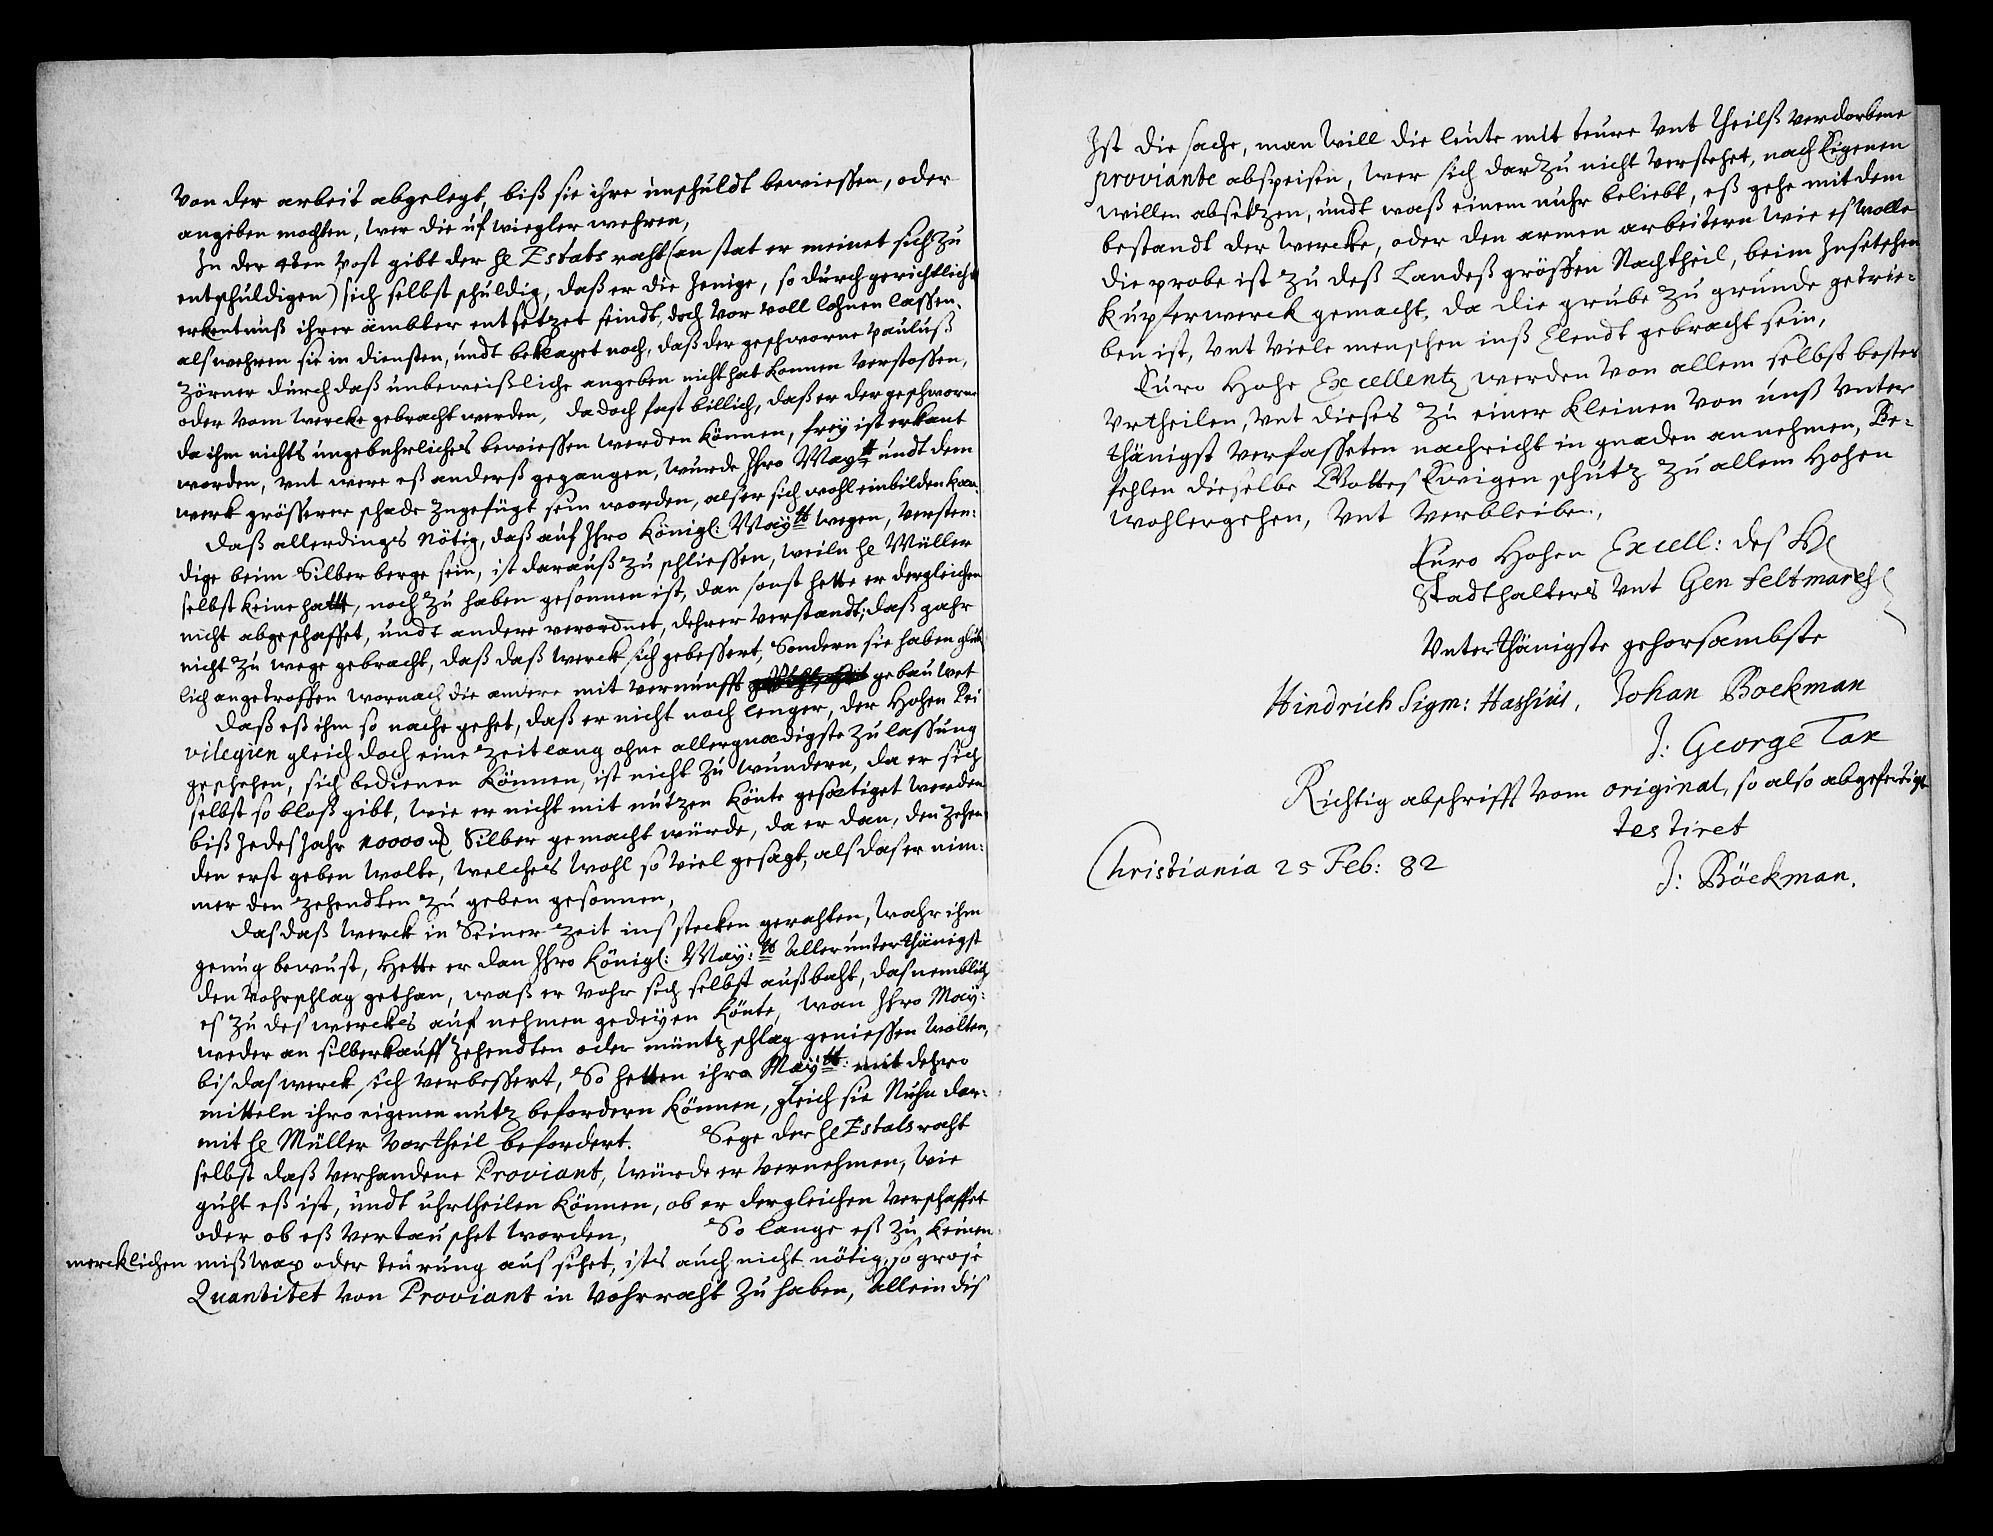 von der arbeit abgelegt, biß sie ihre unschuldt bewiessen, oder
angeben mochten, wer die ufwiegler wehren,
In der 4ten Post gibt der H: Estats raht (an stat er meinet sich zu
entschuldigen) sich selbst schuldig, daß er die Jenige, so durch gerichtliche
erkentnuß ihrer ämbter entsetzet seindt, doch vor voll lohnen lassen,
als wehren sie in diensten, undt beklaget noch, daß der geschworne Pauluß
Zörner durch daß unbeweißliche angeben nicht hat konnen verstossen,
oder vom wercke gebracht werden, da doch fast billich, daß er der geschworne
da ihm nichts ungebuhrliches bewiessen werden können, frey ist erkant
worden, vnt were eß anderß gegangen, wurde Ihro Maytt undt dem
werk grösserer schade zugefügt sein worden, als er sich wohl einbilden kan.
Daß allerdings nötig, daß auf Ihro Königl: Maytt wegen, versten:
dige beim Silberberge sein, ist darauß zu schliessen, weiln H: Müller
selbst keine hatt, noch zu haben gesonnen ist, dan sonst hette er dergleichen
nicht abgeschaffet, undt andere verordnet, dehrer verstandt, daß gahr
nicht zu wege gebracht, daß daß werck sich gebessert, Sondern sie haben glük
lich angetroffen wornach die andere mit vernunfft gebauwet
Daß eß ihm so nache gehet, daß er nicht noch lenger, der Hohen Pri
vilegien gleich doch eine zeitlang ohne allergnædigste zulassung
geschehen, sich bedienen können, ist nicht zu wundern, da er sich
selbst so bloß gibt, wie er nicht mit nutzen könte gesætiget werden
biß Jedes Jahr 10000 Silber gemacht würde, da er dan, den zehen
den erst geben wolte, welches wohl so viel gesagt, als das er nim:
mer den zehendten zu geben gesonnen,
Das daß werck in Seiner zeit ins stecken gerahten, wahr ihm
genug bewust, Hette er dan Ihro Königl: May:tt allerunterthänigst
den vohrschlag gethan, waß er vohr sich selbst außbaht, das nemblich
es zu des werckes aufnehmen gedeyen könte, wan Ihro May:
weder an silberkauff zehendten oder müntzschlag geniessen wolten,
bis das werck sich verbessert, So hetten ihro Maytt: mit dehro
mitteln ihro eigenen nutz befordern können, gleich sie Nuhn dar:
mit H: Müller vortheil befordert. Sege der H: Estatsraht
selbst daß verhandene Proviant, würde er vernehmen, wie
guht eß ist, undt uhrtheilen können, ob er dergleichen verschaffet
oder ob eß vertauschet worden, So lange eß zu keinen
mercklichen mißwax oder teurung aussihet, ists auch nicht nötig, so grose
Quantitet von Proviant in vohrraht zu haben, Allein dis
Ist die sache, man will die leute mit teure vnt theilß verdorbene
proviante abspeisen, wer sich darzu nicht verstehet, nach Eigenen
willen absetzen, undt waß einem nuhr beliebt, eß gehe mit dem
bestandt der wercke, oder den armen arbeitern wie es wolle
die probe ist zu deß Landeß grössen Nachtheil, beim Insetschen
Kupferwerck gemacht, da die grube zu grunde getrie:
ben ist, vnt viele menschen inß Elendt gebracht sein,
Euro Hohe Excellentz werden von allem selbst besten
vrtheilen, vnt dieses zu einer kleinen von unß vnter
thänigst verfasseten nachricht in gnaden annehmen, Be:
fehlen dieselbe Gottes Ewigen schutz zu allem Hohen
wohlergehen, vnt verbleiben,
Euro Hohen Excell: des H:
Stadthalters vnt Gen feltmarch:
Vnterthänigste gehorsambste
Hindrich Sigm: Hassius, Johan Boekman
J: George Tax
Richtig abschrifft vom original, so also abgefertigt
testiret
Christiania 25 Feb: 82
J: Böekman.